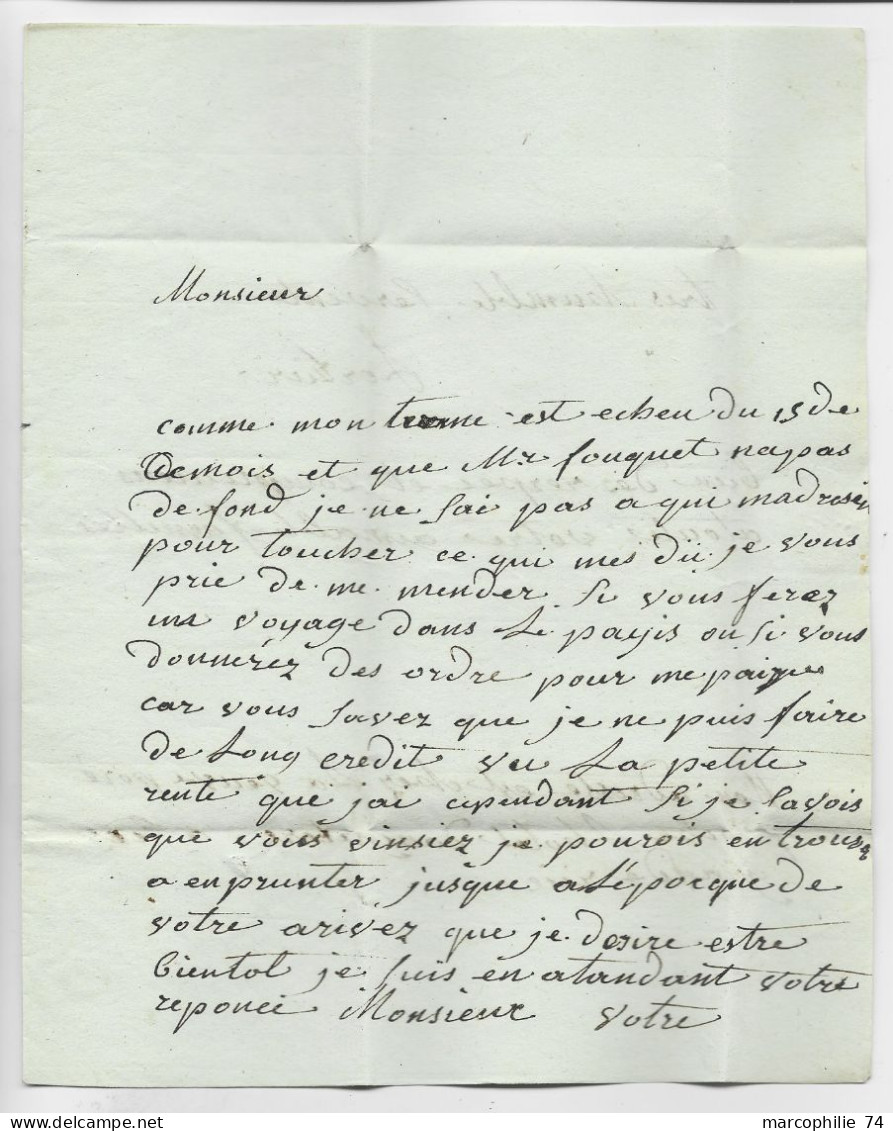 Monsieur
comme mon terme est echeu du 15 de
Cemois et que Mr. fouquet napas
de fond je ne sai pas a qui madreser
pour toucher ce qui mes dü je vous
prie de me mender si vous ferez
un voyage dans le payis ou si vous
donnérez des ordre pour me paiyer
car vous savez que je ne puis faire
de long credit vu la petite
rente que jai cependant si je savois
que vous vinsiez je pourois en trouver
a enprunter jusque a l'épocque de
votre arivez que je desire estre
bientot je suis en atandant votre
reponce Monsieur votre
marcophilie 74